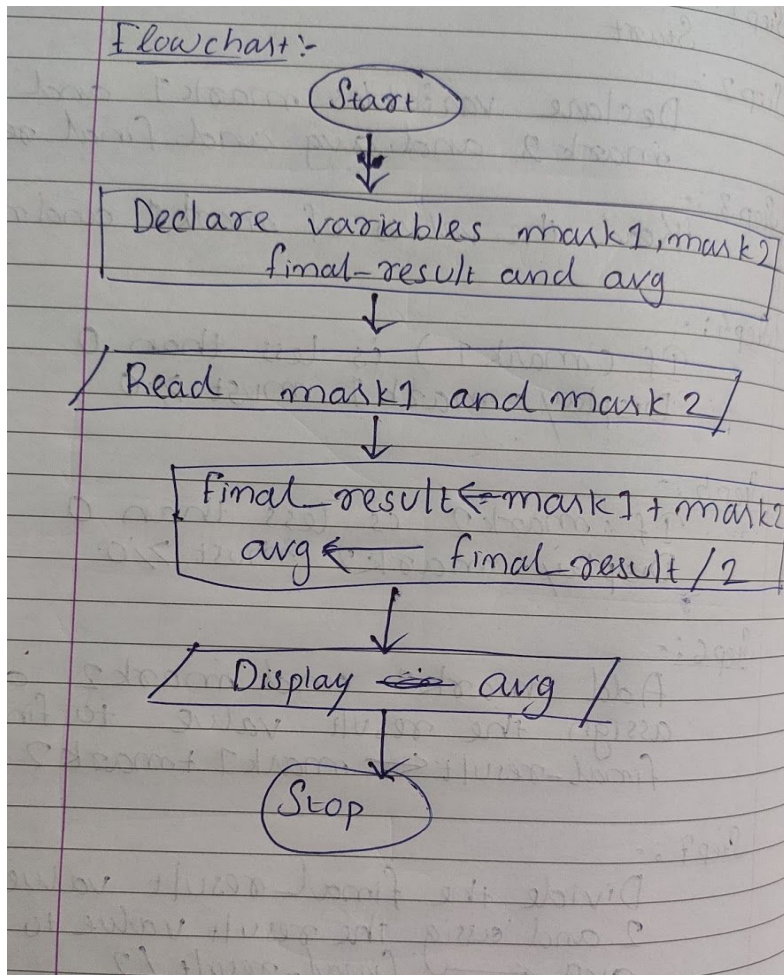 Flowchart:-
Start
Declare variables mark1, mark2
final_result and avg
Read mark1 and mark2
final_result ← mark1 + mark2
avg ← final_result / 2
Display avg
Stop